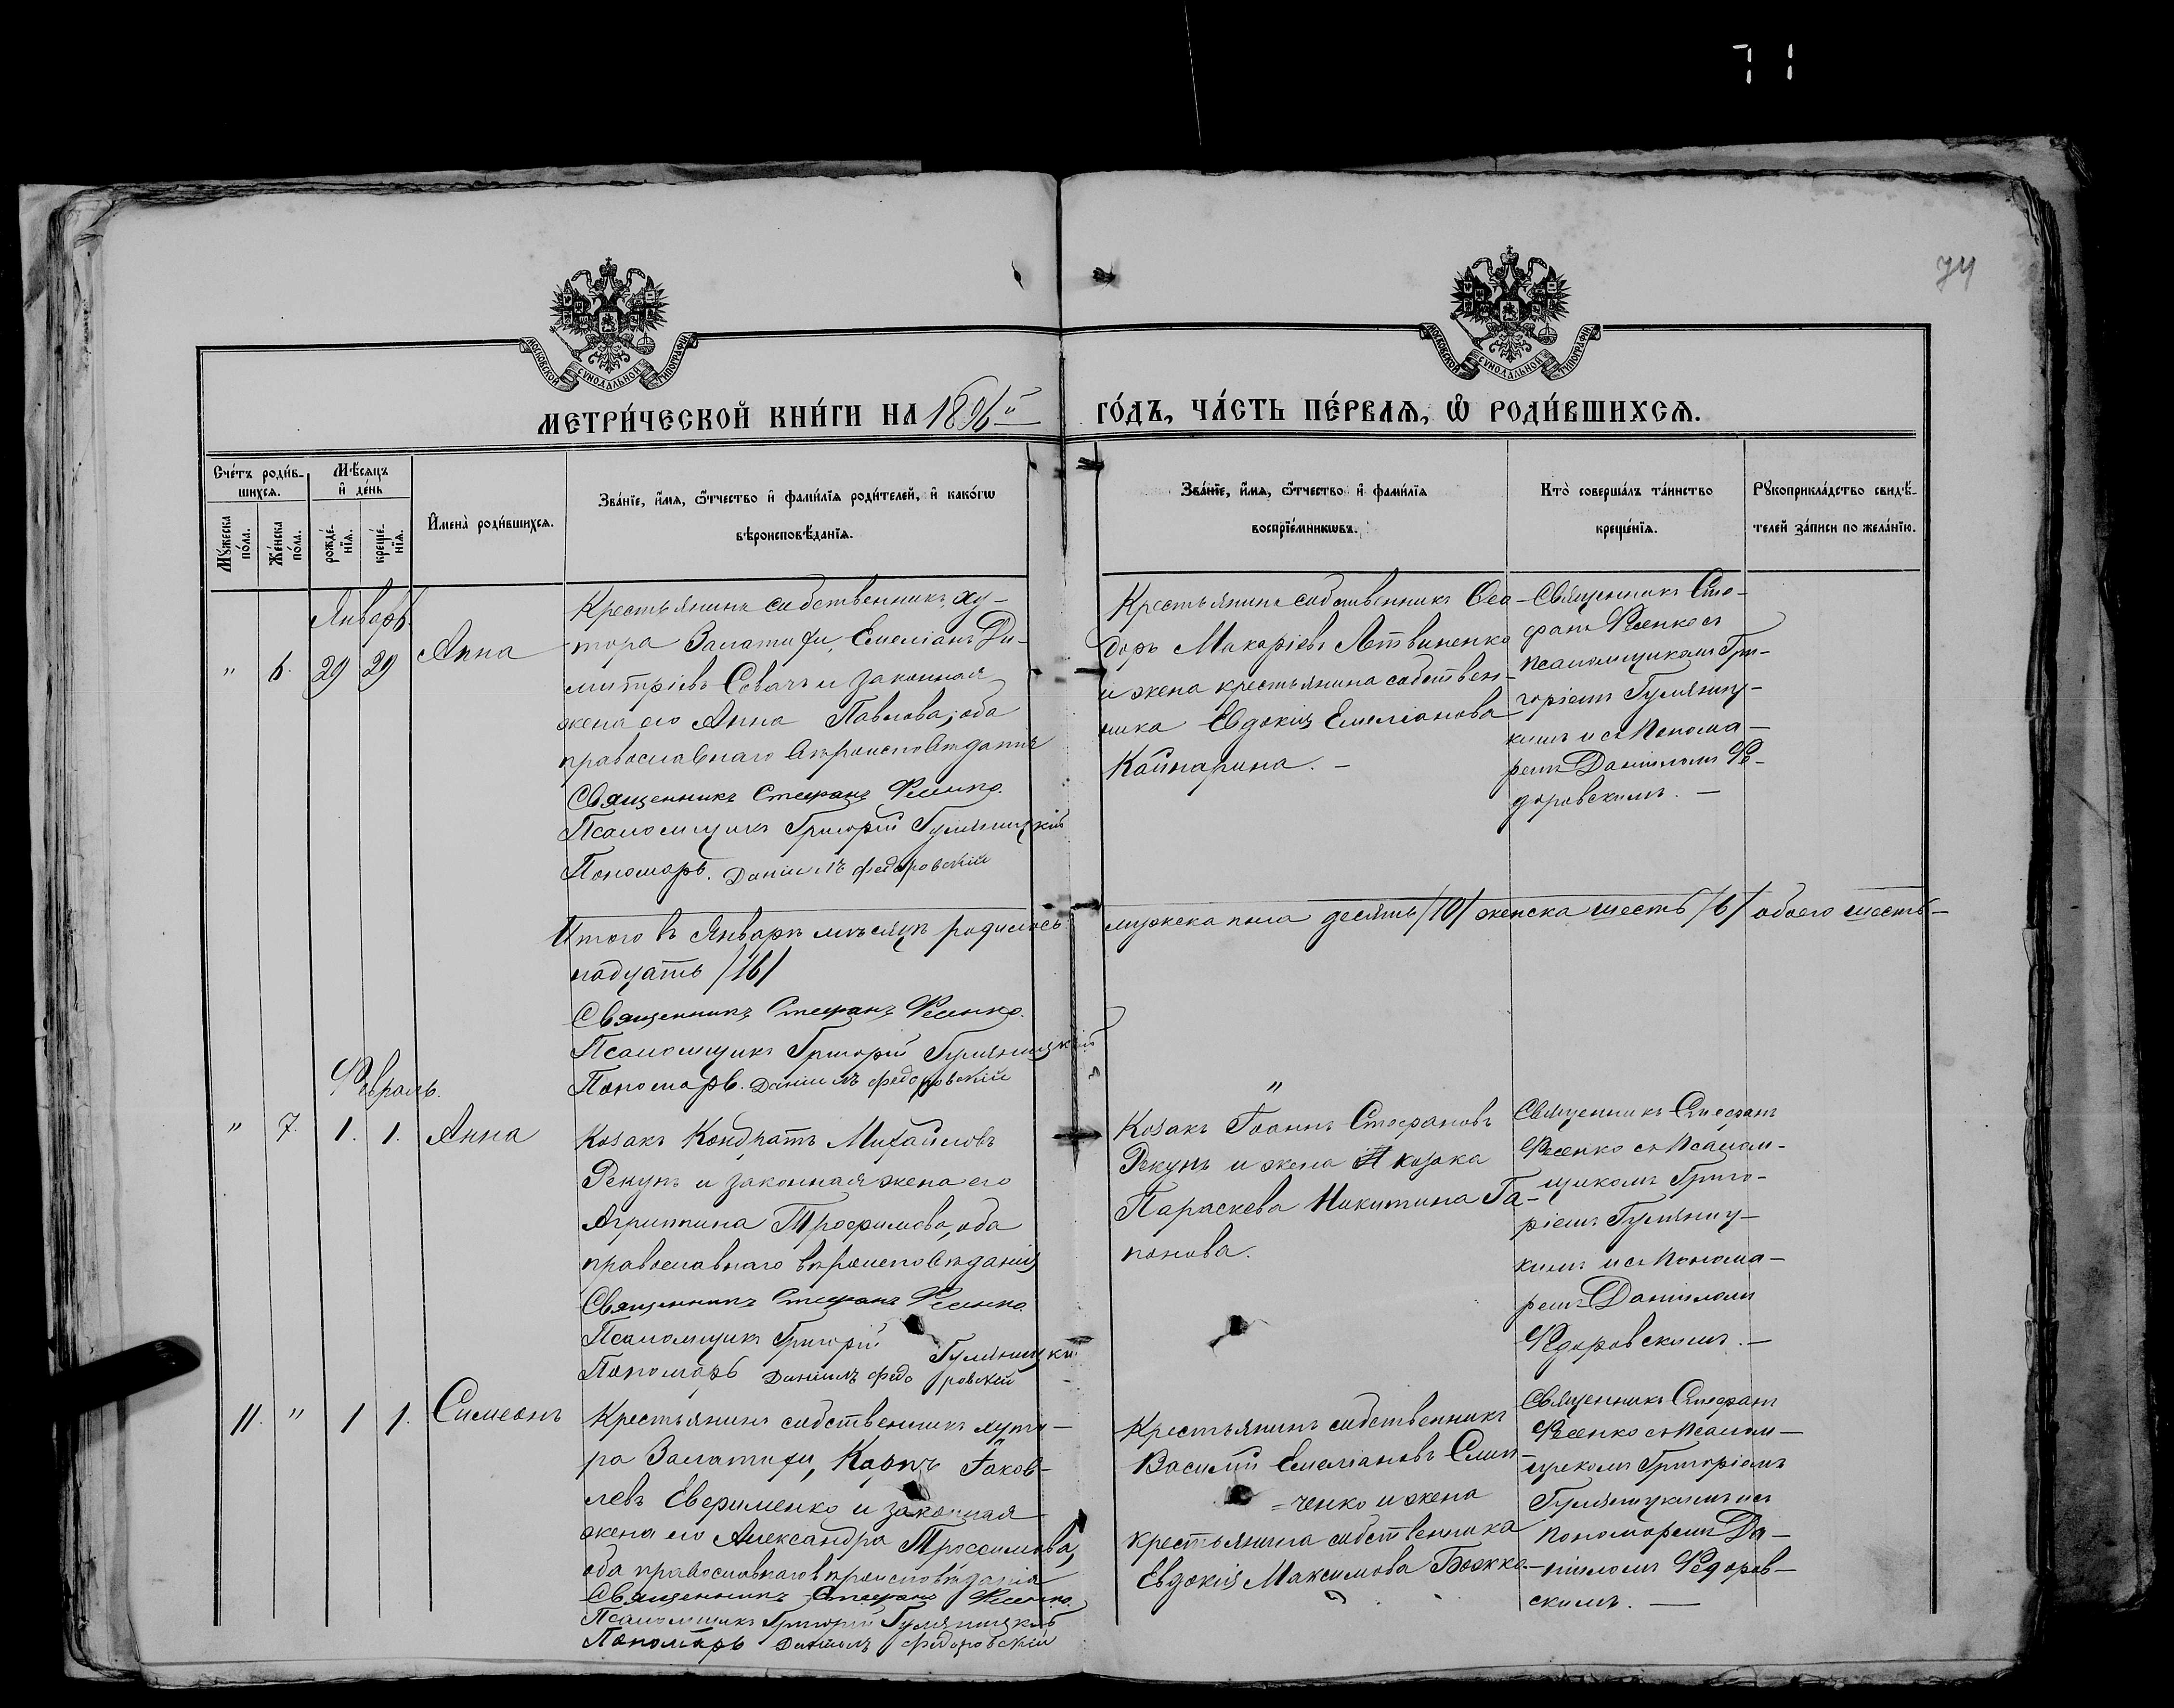 71
74
МОСКОВСКОЙ СУНОДАЛЬНОЙ ТИПОГРАФІИ
МОСКОВСКОЙ СУНОДАЛЬНОЙ ТИПОГРАФІИ
МЕТРИ́ЧЕСКОЙ КНИ́ГИ НА 1896й ГО́ДЪ, ЧА́СТЬ ПЕ́РВАѦ, Ѽ РОДИ́ВШИХСѦ.
Сче́тъ роди́в-
шихсѧ.
Мꙋ́жеска
по́ла.
Же́нска
по́ла.
Мѣ́сѧцъ
и҆ де́нь
рожде́-
нїѧ.
креще́-
нїѧ.
И҆мена̀ роди́вшихсѧ.
Зва́нїе, и҆́мѧ, ѻ҆́тчество и҆ фами́лїѧ роди́телей, и҆ како́гѡ
вѣроисповѣ́данїѧ.
Зва́нїе, и҆́мѧ, ѻ҆́тчество и҆ фами́лїѧ
воспрїе́мникѡвъ.
Кто̀ соверша́лъ та́инство
креще́нїѧ.
Рꙋкоприкла́дство свидѣ́-
телей за́писи по жела́нїю.
Январь.
" 6. 29 29
Анна
Крестьянинъ собственникъ, ху-
тора Залатихи, Емеліанъ Ди-
митріевъ Севачъ и законная
жена его Анна Павлова, оба
православнаго вѣроисповѣданія
Священникъ Стефанъ Ѳесенко.
Псаломщикъ Григорій Гумяницкій
Пономарь. Даніилъ Федоровскій
Крестьянинъ собственникъ Ѳео-
доръ Макаріевъ Литвиненко
и жена крестьянина собствен-
ника Евдокія Емеліанова
Кайнарина. —
Священникъ Сте-
фанъ Ѳесенко съ
псаломщикомъ Гри-
горіемъ Гумяниц-
кимъ и съ Понома-
ремъ Даніиломъ Ѳе-
доровскимъ. —
Итого въ Январѣ мѣсяцѣ родилось мужеска пола десять /10/ женска шесть /6/ обоего шест-
надцать /16/
Священникъ Стефанъ Ѳесенко.
Псаломщикъ Григорій Гумяницкій
Пономарь. Даніилъ Федоровскій
Февраль.
" 7. 1. 1. Анна
Козакъ Кондратъ Михайловъ
Рекунъ и законная жена его
Агриппина Трофимова, оба
православнаго вѣроисповѣданія
Священникъ Стефанъ Ѳесенко
Псаломщикъ Григорій Гумяницкій
Пономарь Даніилъ Федоровскій
"
Козакъ Іоаннъ Стефановъ
Рекунъ и жена козака
Параскева Никитина Га-
понова.
Священникъ Стефанъ
Ѳесенко съ Псалом-
щикомъ Григо-
ріемъ Гумяниц-
кимъ и съ Понома-
ремъ Даніиломъ
Ѳедоровскимъ. —
11. " 1 1. Симеонъ
Крестьянинъ собственникъ хуто-
ра Залатихи, Карпъ Іаков-
левъ Евфименко и законная
жена его Александра Трофимова,
оба православнаго вѣроисповѣданія
Священникъ Стефанъ Ѳесенко.
Псаломщикъ Григорій Гумяницкій
Пономарь Даніилъ Федоровскій
Крестьянинъ собственникъ
Василій Емеліановъ
=ченко и жена
крестьянина собственника
Евдокія Максимова Божко
Священникъ Стефанъ
Ѳесенко съ Псалом-
щикомъ Григоріемъ
Гумяницкимъ и съ
Пономаремъ Да-
ніиломъ Ѳедоров-
скимъ. —